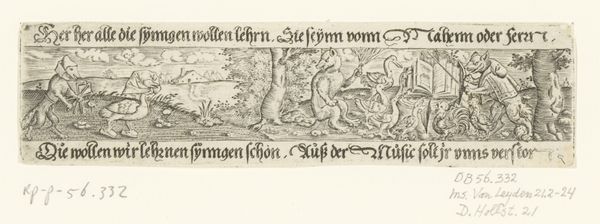 Her her alle die syngen wollen lehrn. Sie seynn vonn Nahenn oder ferrn.
Die wollen wir lehrnen syngen schön. Auß der Music solt jr vnns verston
RP-P-56.332
OB 56.332
Ms. Von Leyden 21.2-24
D. Hollst. 21